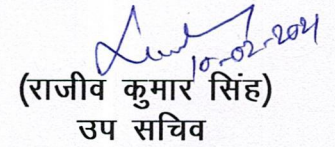 10-02-2021
(राजीव कुमार सिंह)
उप सचिव